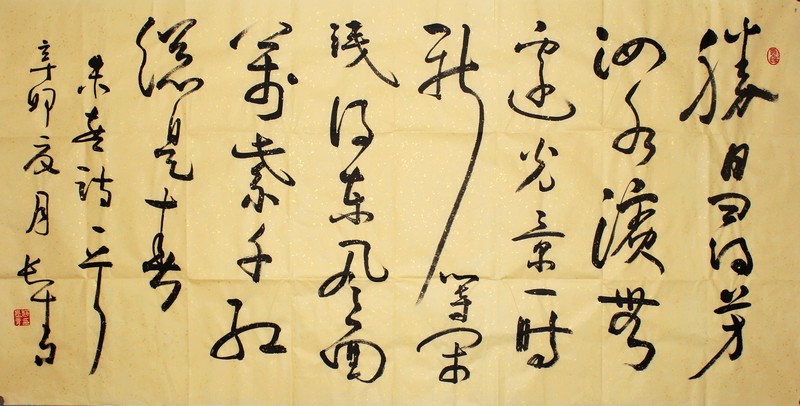 勝日尋芳
泗水濱無
邊光景一時
新等閒
識得東風面
萬紫千紅
總是春
朱熹詩一首
辛卯夏月